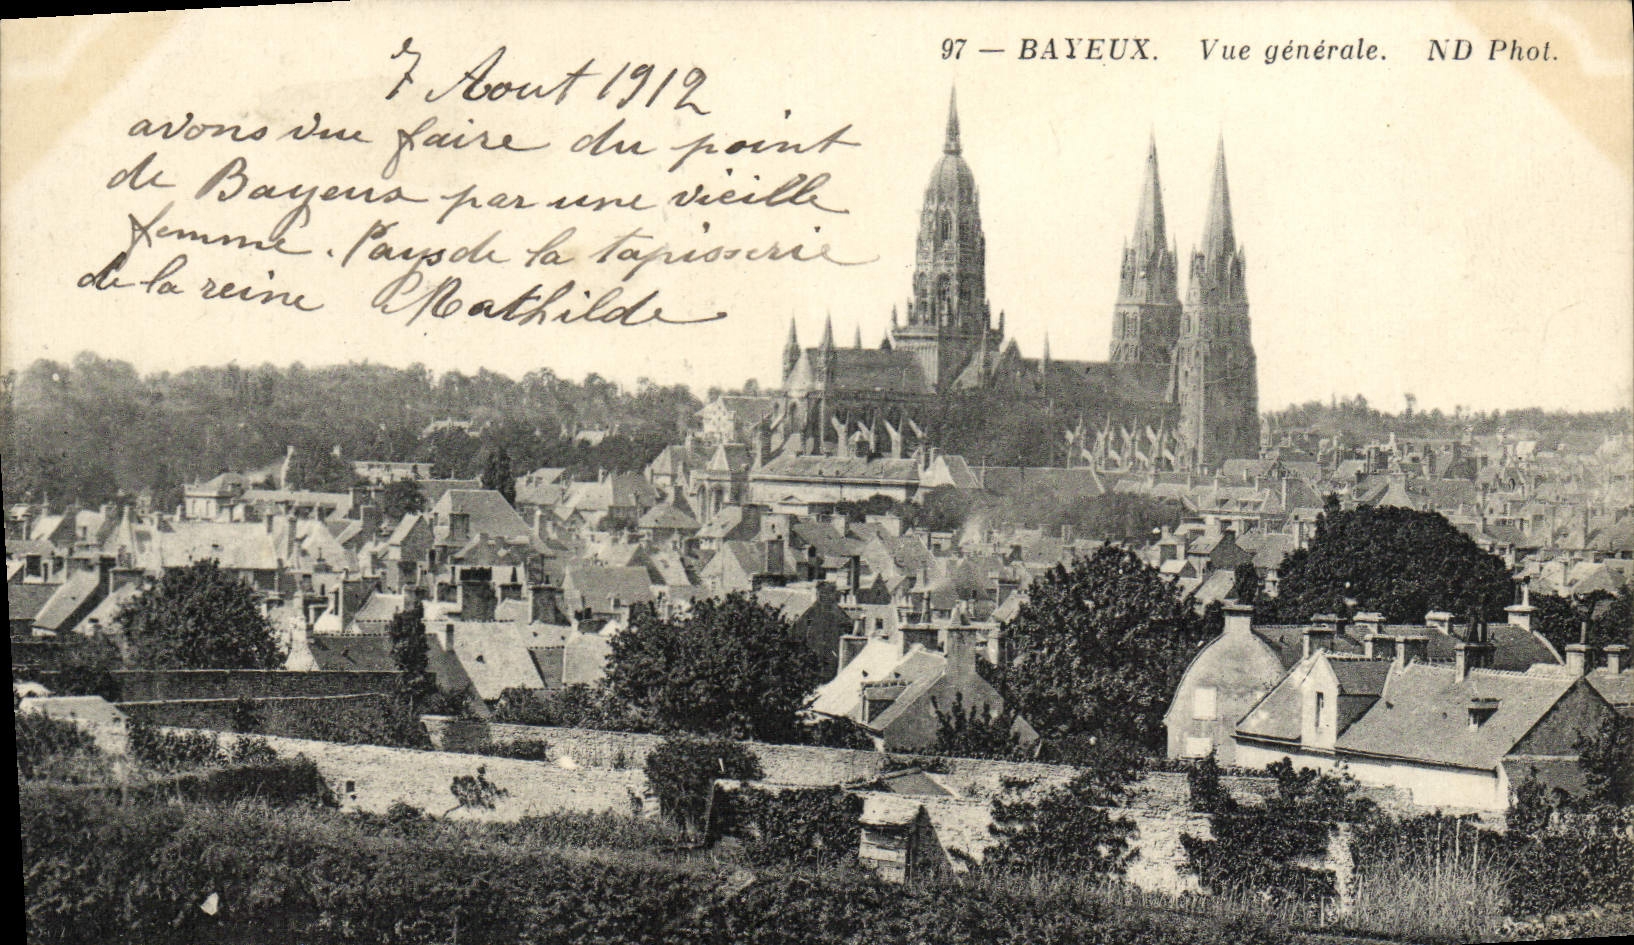 97 — BAYEUX. Vue générale. ND Phot.
7 Aout 1912
avons vue faire du point
de Bayeux par une vieille
femme. Pays de la tapisserie
de la reine Mathilde